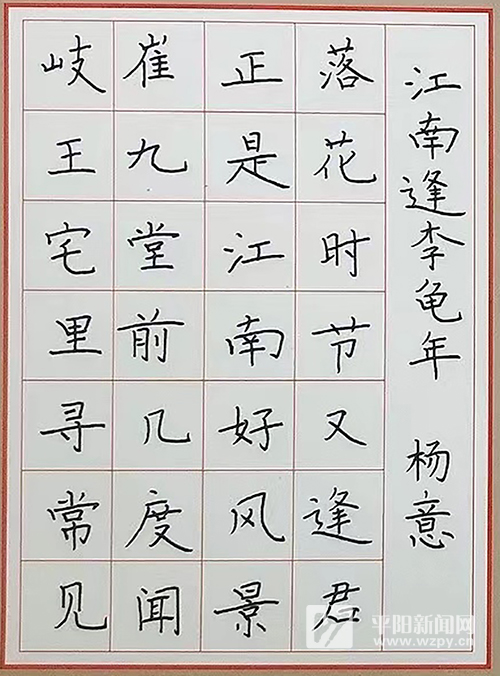 江南逢李龟年 杨意
岐王宅里寻常见
崔九堂前几度闻
正是江南好风景
落花时节又逢君
平阳新闻网
www.wzpy.cn